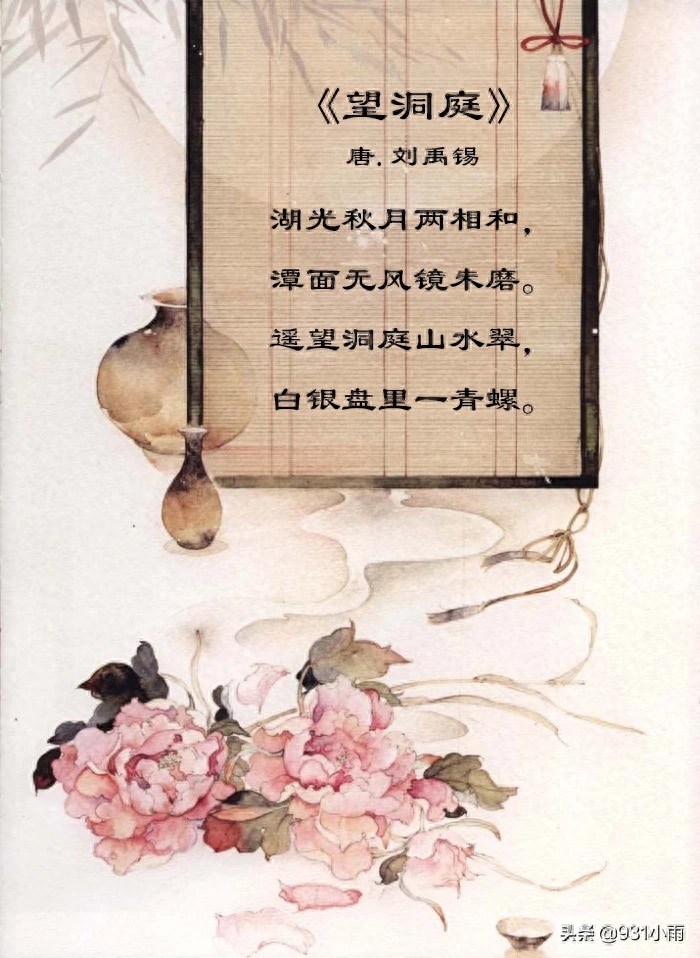 《望洞庭》
唐.刘禹锡
湖光秋月两相和，
潭面无风镜未磨。
遥望洞庭山水翠，
白银盘里一青螺。
头条 @931小雨